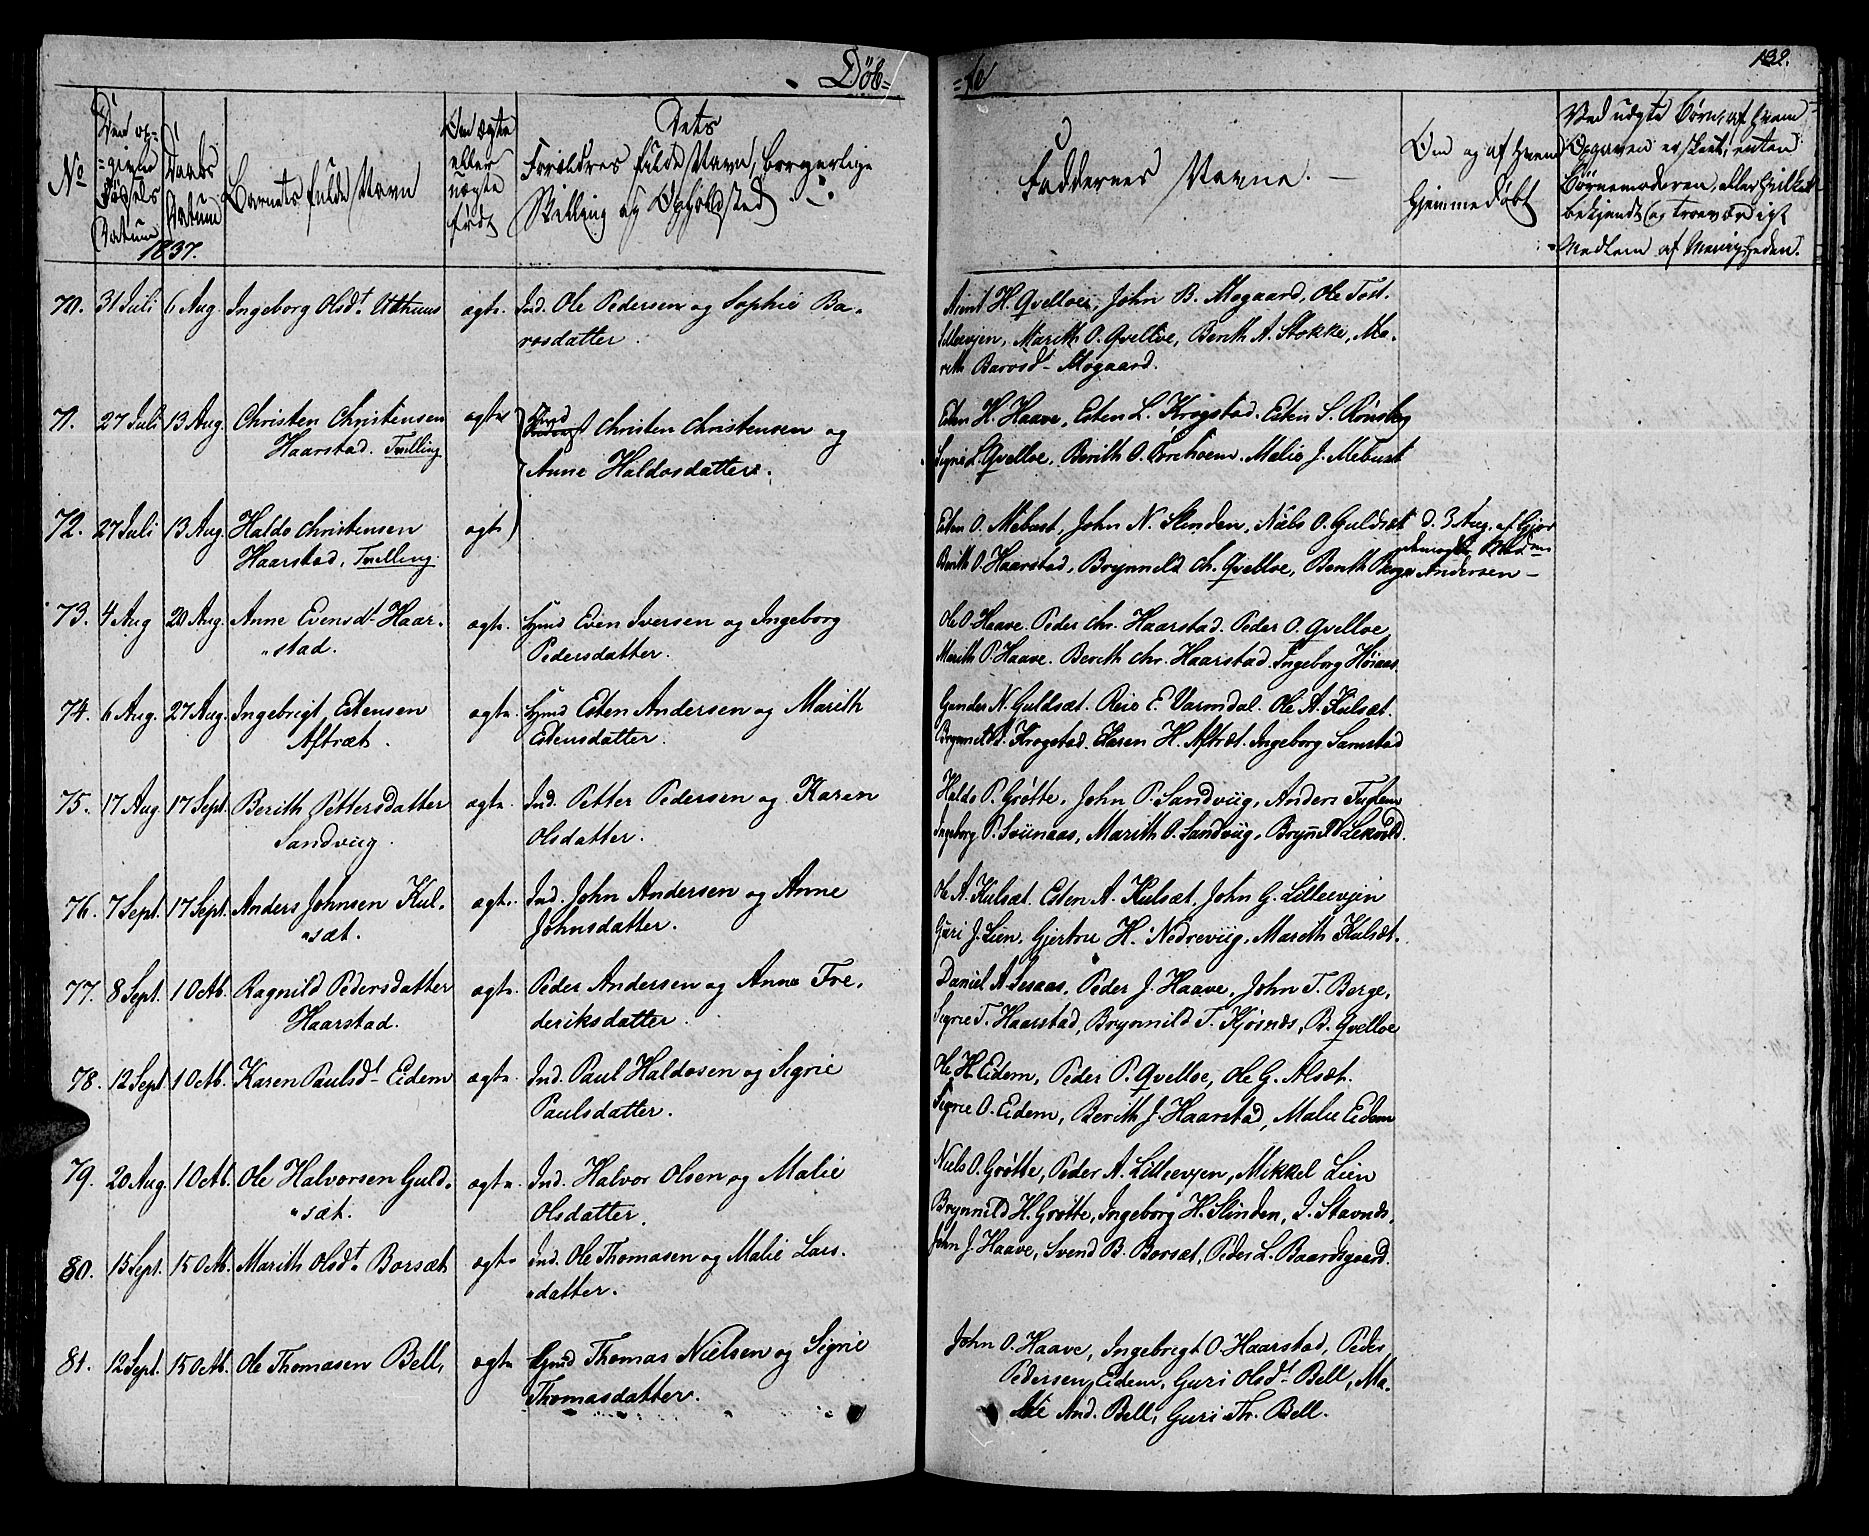 Døb=
=te
132.
No
Den op=
=givne
Fødsels
Datum
Daabs
Datum
1837.
Barnets fulde Navn
Om ægte
eller
uægte
født
Dets
Forældres fulde Navn, borgerlige
Stilling og Opholdsted
Faddernes Navne. —
Om og af hvem
Hjemmedøbt
Ved uægte Børn, af hvem
Opgaven er skeet, enten
Børnemoderen, eller hvilket
bekjendt og troeværdigt
Medlem af Menigheden.
70. 31 Juli 6 Aug. Ingeborg Olsdt Uthuus ægte. Ind. Ole Pedersen og Sophie Ba-
rosdatter.
H. Qvelloe, John B. Mogaard, Ole Tost.
Lillevjen, Marith O. Qvelloe, Berith A. Stokke, Ma-
rith Barosdt Mogaard.
71. 27 Juli 13 Aug. Christen Christensen ægte Christen Christensen og
Haarstad. Tvilling Anne Haldosdatter.
Esten H. Haave, Esten L. Krogstad. Esten S. Rønsberg
Sigrie L. Qvelloe, Berith O. Morie J. Mebust
72. 27 Juli 13 Aug. Haldo Christensen ægte
Haarstad, Tvilling.
Esten O. Mebust, John N. Slinden, Niels O. Guldsæt d. 3 Aug. af Gjor
demoder Madm
Berith O. Haarstad, Brynnild Ch. Qvelloe, Berith Berge Andersen —
73. 4 Aug 20 Aug. Anne Evensdt Haar-
"stad.
ægte. Gmd Even Iversen og Ingeborg
Pedersdatter.
Ole O. Haave. Peder Chr. Haarstad. Peder O. Qvelloe
Marith P. Haave. Berith Chr. Haarstad. Ingeborg Høiaas.
74. 6 Aug. 27 Aug. Ingebrigt Estensen ægte. Gmd Esten Andersen og Marith
Aftræt. Estensdatter.
Gunder N. Guldsæt. Reio E. Varmdal. Ole A. Kulsæt.
Brynnild Krogstad. Karen H. Aftræt. Ingeborg Samstad
75. 17 Aug 17 Sept. Berith Pettersdatter ægte. Ind. Petter Pedersen og Karen
Sandviig. Olsdatter.
Haldo P. Grøtte, John P. Sandviig, Anders Fuglem
Ingeborg P. Sviinaas, Marith O. Sandviig, Brynnild Lekvold.
76. 7 Sept. 17 Sept. Anders Johnsen Kul-
"sæt.
ægte. Ind. John Andersen og Anne
Johnsdatter.
Ole A. Kulsæt. Esten A. Kulsæt, John G. Lillevjen
Guri J. Lien, Gjertru H. Nedreviig, Marith Kulsæt.
77. 8 Sept. 1 Octb. Ragnild Pedersdatter ægte. Peder Andersen og Anne Fre-
Haarstad. deriksdatter.
Daniel A. Sesaas, Peder J. Haave, John T. Berge,
Sigrie T. Haarstad, Brynnild T. Kjøsnæs, B. Qvelloe
78. 12 Sept 1 Octb. Karen Paulsdt Eidem ægte. Ind. Paul Haldosen og Sigrie
Paulsdatter.
Ole H. Eidem, Peder P. Qvelloe, Ole G. Alsæt.
Sigrie O. Eidem, Berith J. Haarstad, Malie Eidem
79. 20 Aug. 1 Octb. Ole Halvorsen Guld-
"sæt.
ægte. Ind. Halvor Olsen og Malie
Olsdatter.
Niels O. Grøtte, Peder A. Lillevjen, Mikkel Lien
Brynnild H. Grøtte, Ingeborg H. Slinden, I. Stavnæs,
80. 15 Sept. 15 Octb. Marith Olsdt Borsæt ægte Ind. Ole Thomasen og Malie Lars-
"datter.
John J. Haave, Svend B. Borsæt, Peder L. Baardsgaard.
81. 12 Sept. 15 Octb. Ole Thomasen Bell, ægte Gmd Thomas Nielsen og Sigrie
Thomasdatter.
John O. Haave, Ingebrigt O. Haarstad, Peder
Pedersen Eidem, Guri Olsdt Bell, Ma-
lie And. Bell, Guri Th. Bell.